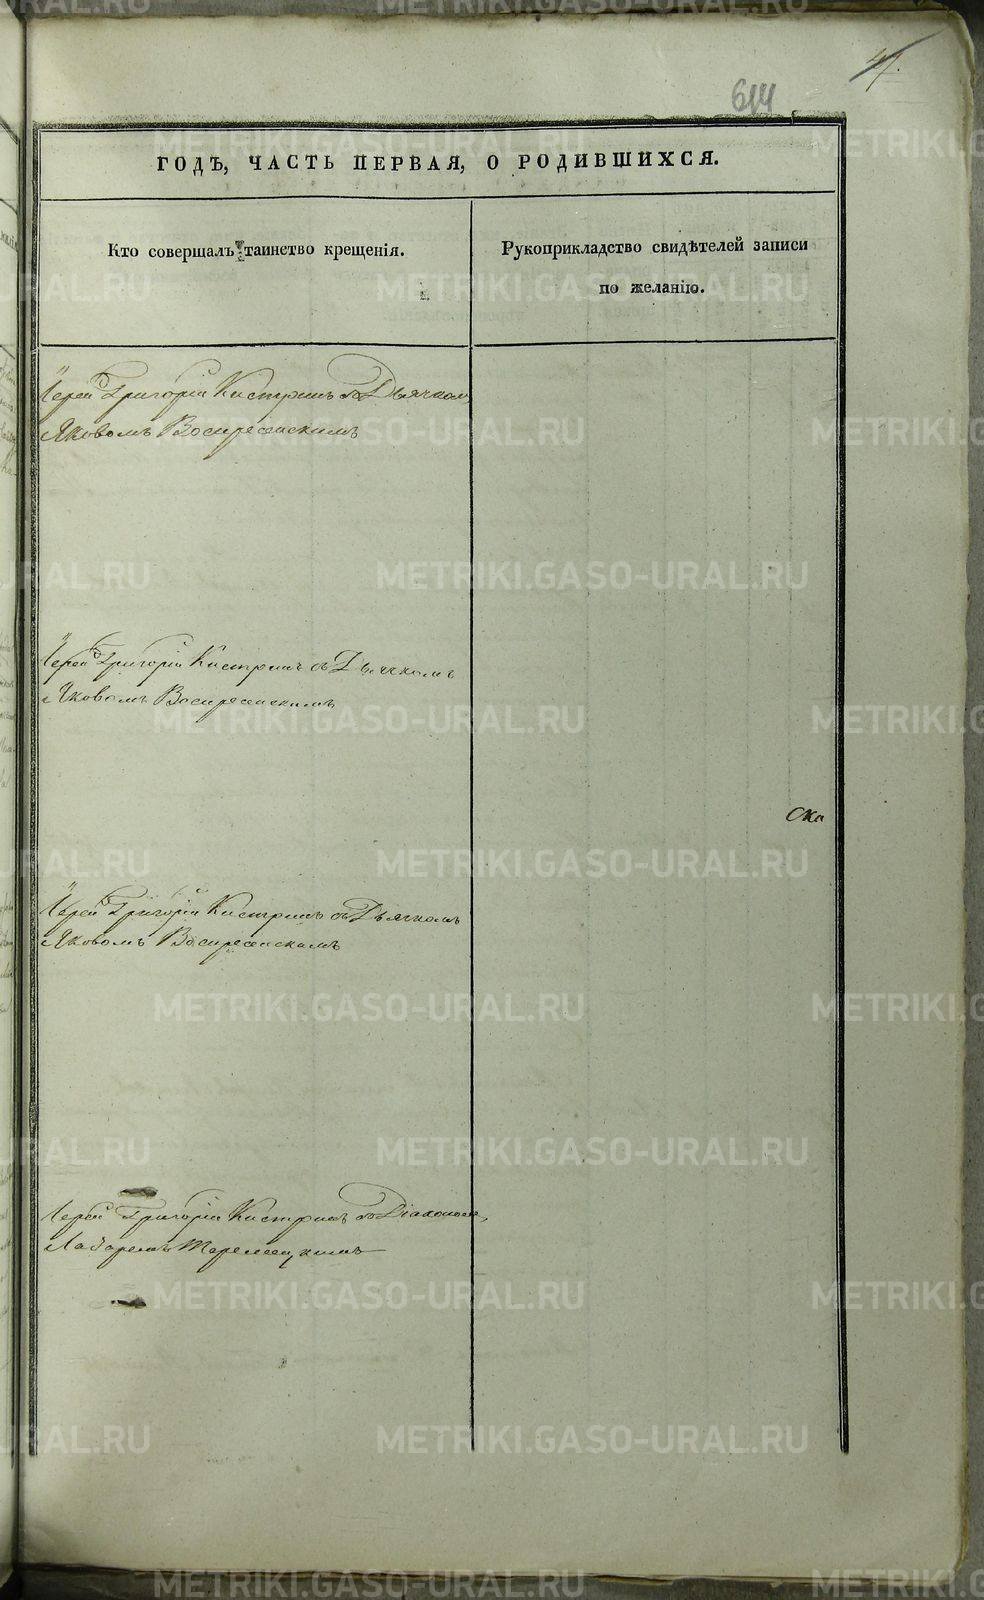 47.
614
ГОДЪ, ЧАСТЬ ПЕРВАЯ, О РОДИВШИХСЯ.
Кто совершалъ таинство крещенія.
Рукоприкладство свидѣтелей записи
по желанію.
Іерей Григорій Кистринъ съ Дьячком
Яковомъ Воскресенскимъ
Іерей Григорій Кистринъ съ Дьячкомъ
Яковомъ Воскресенскимъ
Ска
Іерей Григорій Кистринъ съ Дьячкомъ
Яковомъ Воскресенскимъ
Іерей Григорій Кистринъ съ Діакономъ
Лазаремъ
METRIKI.GASO-URAL.RU